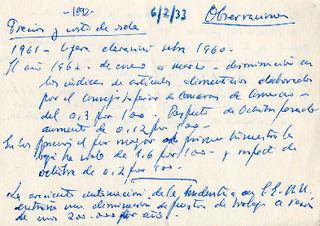 -1892-
6/2/33
Observaciones
Precios y costo de vida
1961 - ligera elevación sobre 1960 -
El año 1962 - de enero a marzo - disminución en
los índices de artículos alimenticios elaborados
por el consejo superior de cámaras de comercio -
del 0.3 por 100 - Respecto de Octubre pasado
aumento de 0.12 por 100 -
En los precios al por mayor en primer bimestre la
baja ha sido de 1.6 por 100 - y respect de
octubre de 0.2 por 100 -
La creciente automación de la industria en EE.UU.
entraña una eliminación de puestos de trabajo a razón
de unos 200.000 por año.